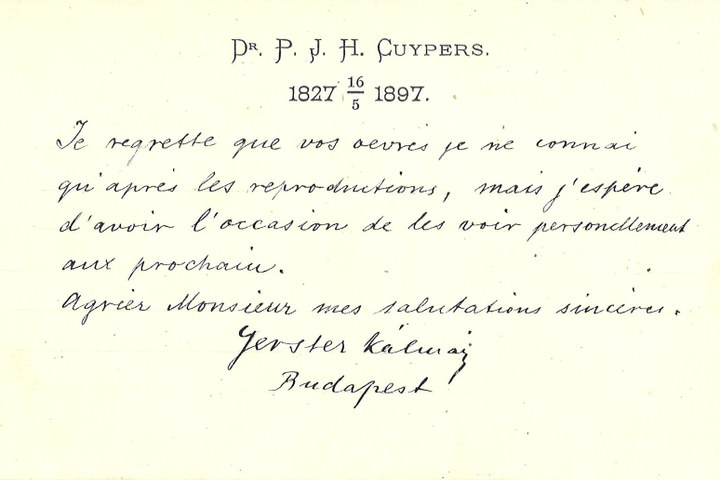 Dr. P. J. H. Cuypers.
1827 16/5 1897.
Je regrette que vos oevres je ne connai
qu'après les reproductions, mais j'espère
d'avoir l'occasion de les voir personellement
aux prochain.
Agrier Monsieur mes salutations sincères.
Gerster Kálmán
Budapest